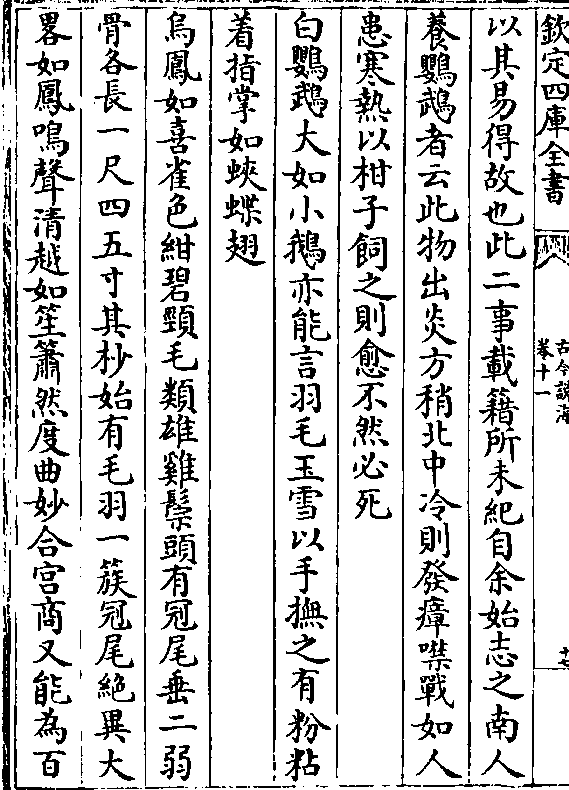 欽定四庫全書
古今說海
卷十一
十七
以其易得故也此二事載籍所未紀自余始志之南人
養鸚鵡者云此物出炎方稍北中冷則發瘴噤戰如人
患寒熱以柑子飼之則愈不然必死
白鸚鵡大如小鵝亦能言羽毛玉雪以手撫之有粉粘
着指掌如蛺蝶翅
烏鳳如喜雀色紺碧頸毛類雄雞鬃頭有冠尾垂二弱
骨各長一尺四五寸其杪始有毛羽一簇冠尾絕異大
畧如鳳鳴聲清越如笙簫然度曲妙合宮商又能為百